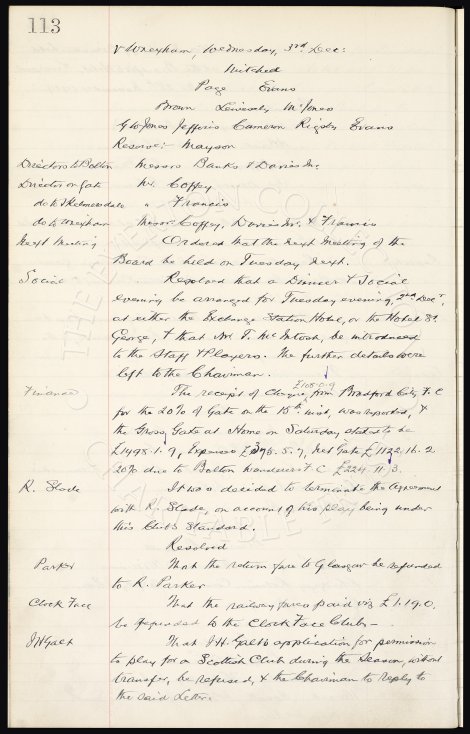 113
v Wrexham, Wednesday, 3rd Dec:
Mitchell
Page Evans
Brown Lewesely McJones
G W Jones Jefferis Cameron Rigsby Evans
Reserve:- Mayson
Directors to Bolton Messrs Banks & Davis Jnr.
Director on Gate Mr. Coffey
do to Skelmersdale " Francis
do to Wrexham Messrs Coffey, Davis Jnr. & Francis
Next Meeting Ordered that the next meeting of the
Board be held on Tuesday next.
Social Resolved that a Dinner & Social
evening be arranged for Tuesday evening, 2nd Decr,
at either the Exchange Station Hotel, or the Hotel St
George, & that Mr T. McIntosh, be introduced
to the Staff & Players. The further details were
left to the Chairman.
£108-0-9
Finance The receipt of Cheque from Bradford City F.C
for the 20% of Gate on the 15th inst, was reported, &
the Gross Gate at Home on Saturday stated to be
£1498.1.9, Expenses £375.5.7, Net Gate £1122.16.2
20% due to Bolton Wanderers F C £224.11.3.
R. Slade It was decided to terminate the Agreement
with R. Slade, on account of his play being under
this Clubs Standard.
Resolved
Parker That the return fare to Glasgow be refunded
to R. Parker
Clock Face That the railway fares paid viz £1.19.0,
be refunded to the Clock Face Club -
J H Galt That J. H. Galt's application for permission
to play for a Scottish Club during the Season, without
transfer, be refused, & the Chairman to reply to
the said Letter.